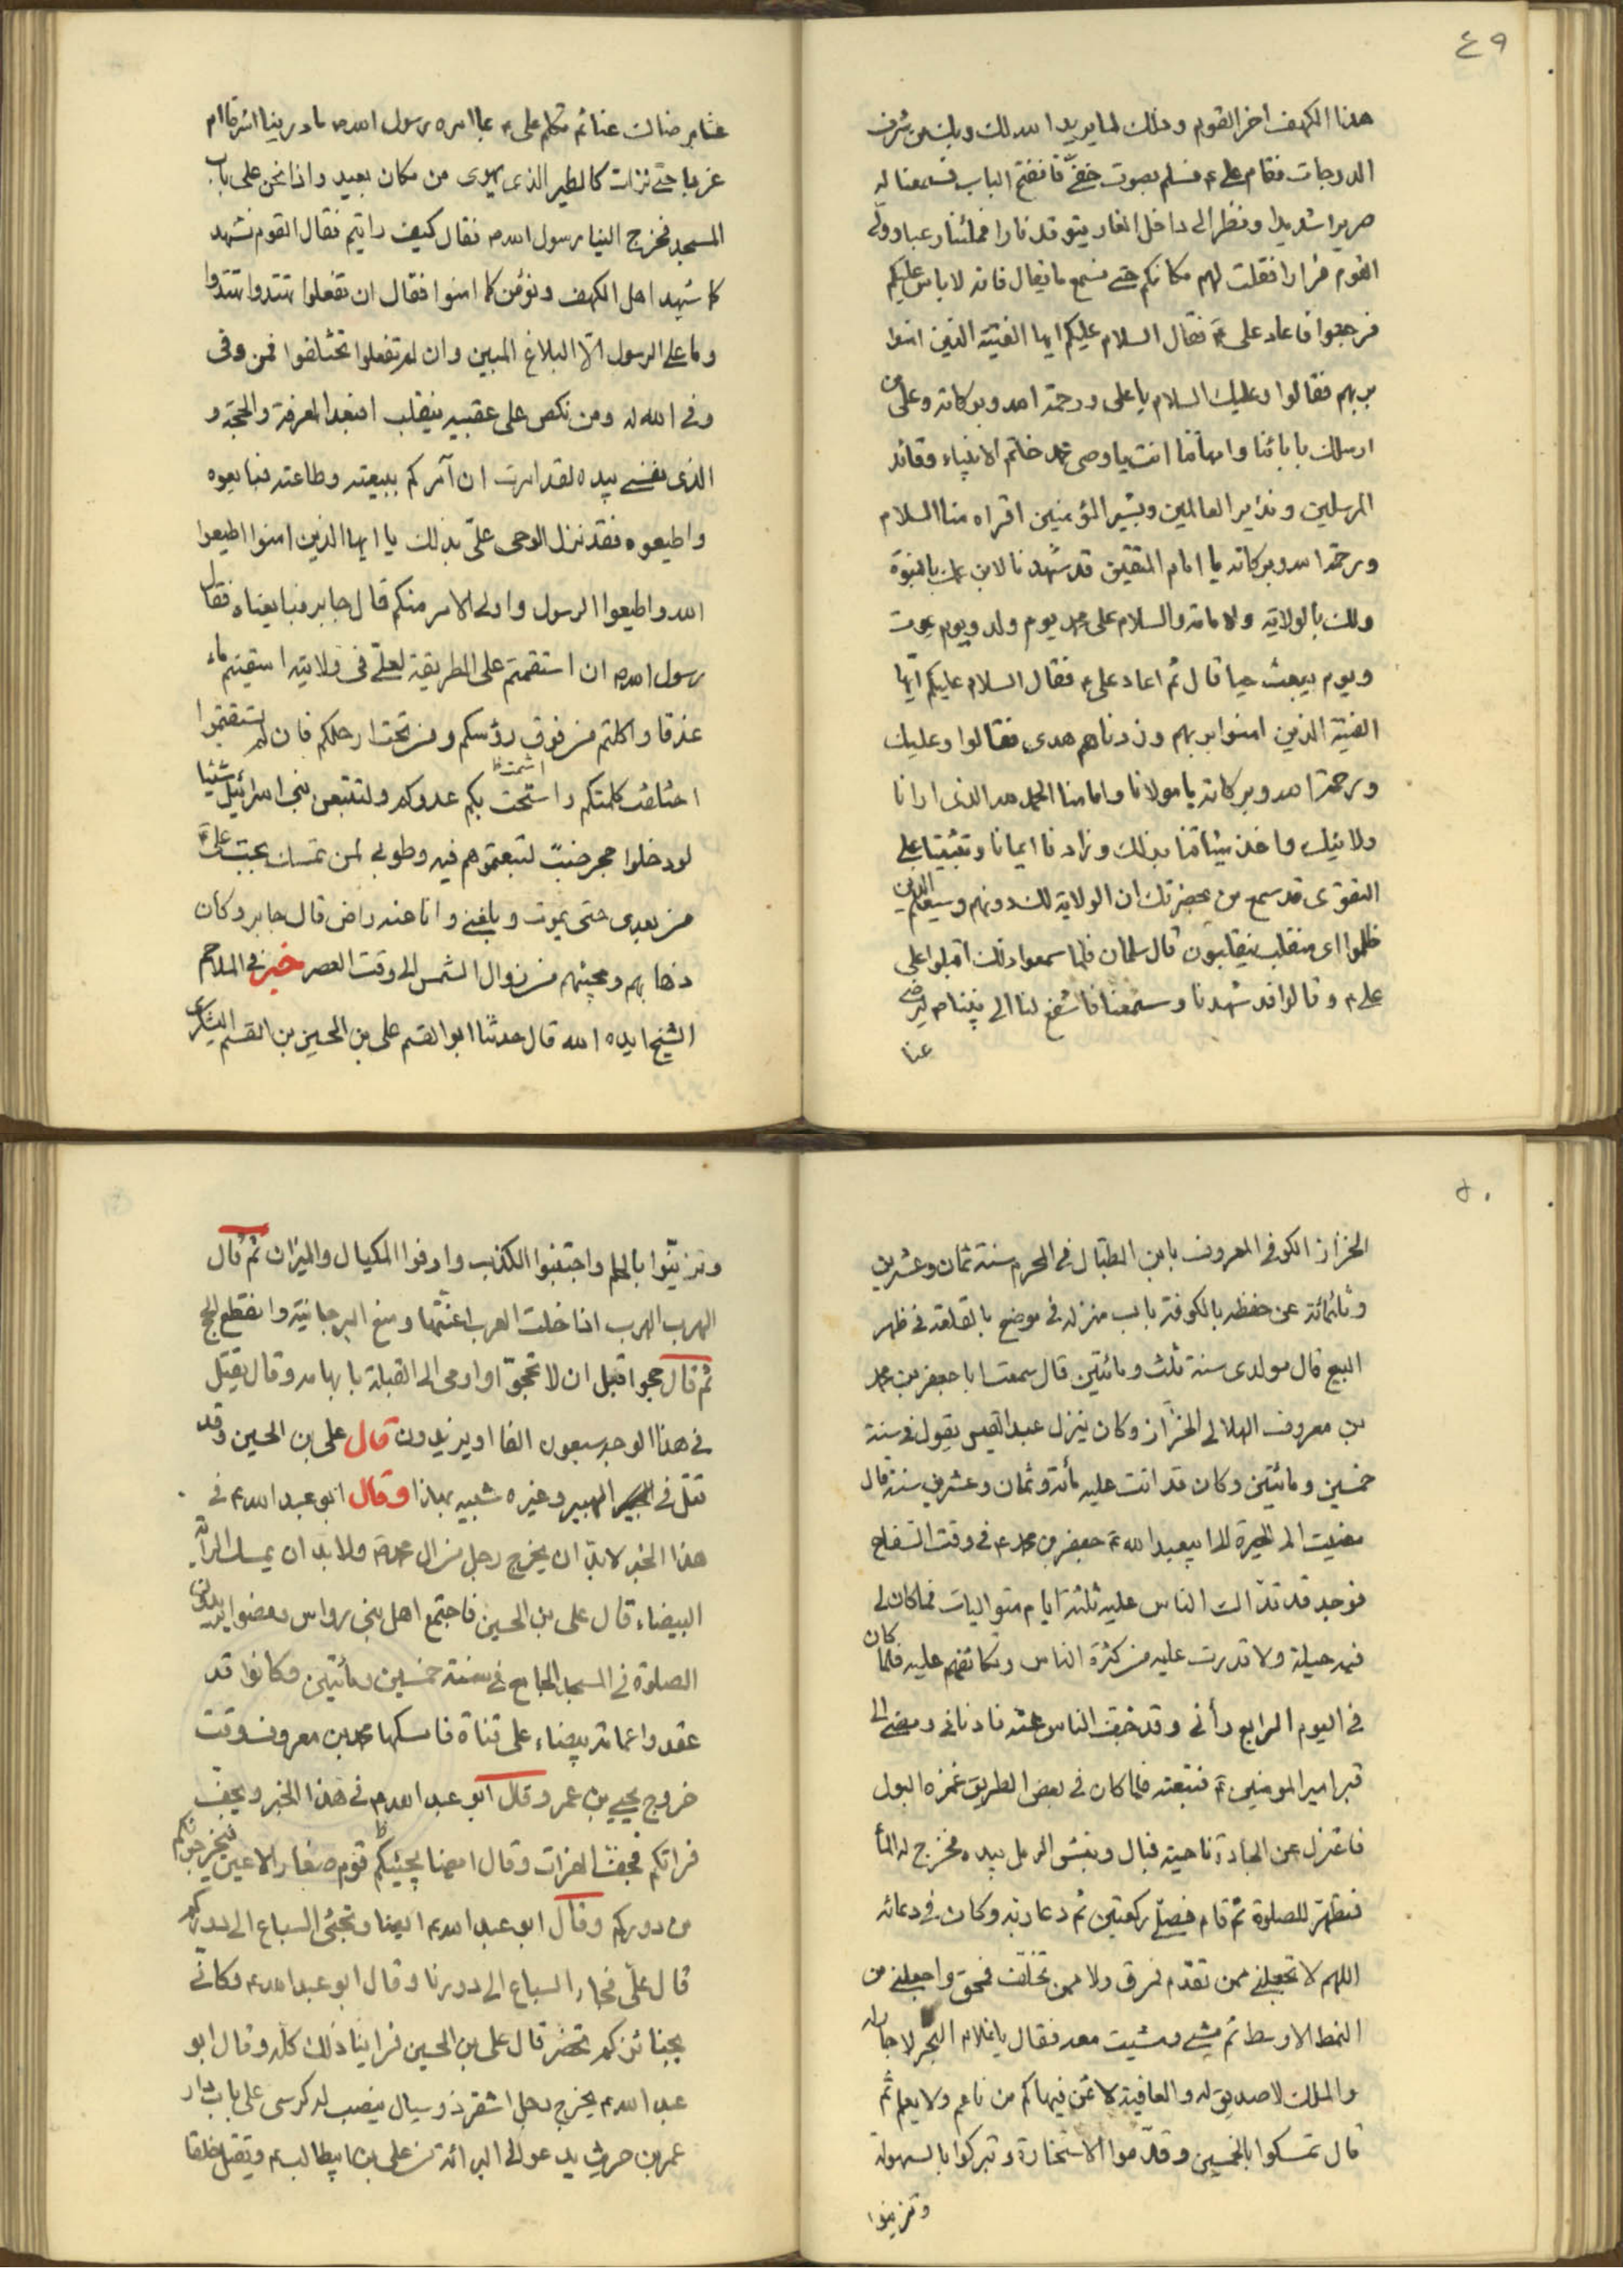 ٤٩
هذا الكهف اخر القوم وذلك لما يريد الله لك وبك من شرف
الدرجات فقام على ء فسلم بصوت خفىّ فانفتح الباب فسمعنا له
صريرا شديدا ونظر الى داخل الغار يتوقد نارا فملئنا رعبا وولّى
القوم فرارا فقلت لهم مكانكم حتى نسمع ما يقال فانه لا باس عليكم
فرجعوا فاعاد على ءَ فقال السلام عليكم ايها الفتية الذين امنوا
بربهم فقالوا وعليك السلام يا على ورحمة الله وبركاته وعلى من
ارسلك بابائنا وامهاتنا انت يا وصى محمد خاتم الانبياء وقائد
المرسلين ونذير العالمين وبشير المؤمنين اقراه منا السلام
ورحمة الله وبركاته يا امام المتقين قد شهدنا لابن عمك بالنبوة
ولك بالولاية والامامة والسلام على محمد يوم ولد ويوم يموت
ويوم يبعث حيا قال ثم اعاد على ء فقال السلام عليكم ايّها
الفتية الذين امنوا بربهم وزدناهم هدى فقالوا وعليك
ورحمة الله وبركاته يا مولانا وامامنا الحمد لله الذى ارانا
ولائيك واخذ ميثاقنا بذلك وزادنا ايمانا وتثبيتا على
التقوى قد سمع من بحضرتك ان الولاية لك دونهم وسيعلم الذين
ظلموا اى منقلب ينقلبون قال سلمان فلما سمعوا ذلك اقبلوا على
على ء وقالوا قد شهدنا وسمعنا فاشفع لنا الى نبينا ص ليرضى
عنا
عنا برضاك عنا ثم تكلم على ء بما امره رسول الله ص ما درينا اشرقا ام
غربا حتّى نزلت كالطير الذى يهوى من مكان بعيد واذا نحن على باب
المسجد فخرج الينا رسول الله ص فقال كيف رايتم فقال القوم نشهد
كما شهد اهل الكهف ونؤمن كما امنوا فقال ان تفعلوا تهتدوا تهتدوا
وما على الرسول الّا البلاغ المبين وان لم تفعلوا تختلفوا فمن وفى
وفى الله له ومن نكص على عقبيه ينقلب افبعد المعرفة والحجة و
الذى نفسى بيده لقد امرت ان آمركم ببيعته وطاعته فبايعوه
واطيعوه فقد نزل الوحى علىّ بذلك يا ايها الذين امنوا اطيعوا
الله واطيعوا الرسول واولى الامر منكم قال جابر فبايعناه فقال
رسول الله ص ان استقمتم على الطريقة لعلى فى ولايته اسقيتم ماء
غدقا واكلتم من فوق رؤسكم ومن تحت ارجلكم فان لم تستقيموا
اختلفت كلمتكم واشمتت بكم عدوكم ولتتبعن بنى اسرائيل شيئا
لو دخلوا جحر ضبّ لتبعتموهم فيه وطوبى لمن تمسك بحبّ علىّ ءَ
من بعدى حتى يموت ويلقنى وانا عنه راض قال جابر وكان
ذهابهم ومجيئهم من زوال الشمس الى وقت العصر خبر فى الملاحم
الشيخ ايده الله قال حدثنا ابو القسم على بن الحسين بن القسم اليشكرى
٥٠
الخزاز الكوفى المعروف بابن الطبّال فى المحرم سنة ثمان وعشرين
وثلثمائة عن حفظه بالكوفة باب منزله فى موضع بالقلعة فى ظهر
السبيع قال مولدى سنة ثلث ومائتين قال سمعت ابا جعفر بن محمد
بن معروف الهلالى الخزّاز وكان ينزل عبد القيس يقول فى سنة
خمسين ومائتين وكان قد اتت عليه مائة وثمان وعشرين سنة قال
مضيت الى الحيرة الى ابيعبد الله ءَ جعفر بن محمد ء فى وقت السفاح
فوجد قد تداك الناس عليه ثلثة ايام متواليات فما كان لى
فيه حيلة ولا قدرت عليه من كثرة الناس وتكاثفهم عليه فلما كان
فى اليوم الرابع رأنى وقد خفّ الناس عنه فادنانى ومضى الى
قبر امير المومنين ءَ فتبعته فلما كان فى بعض الطريق غمزه البول
فاعتزل عن الجادة ناحية فبال ونبش الرمل بيده فخرج له الماء
فتطهرّ للصلوة ثم قام فصلّى ركعتين ثم دعا ربه وكان فى دعائه
اللهم لا تجعلنى ممن تقدّم فمرق ولا ممن تخلّف فمحق واجعلنى من
النمط الاوسط ثم مشى ومشيت معه فقال يا غلام البحر لا جار له
والملك لا صديق له والعافية لا ثمن فيها كم من ناعم ولا يعلم ثم
قال تمسكوا بالخمس وقدّموا الاستخارة وتبركوا بالسهولة
وتزينوا
وتزيّنوا بالحلم واجتنبوا الكذب واوفوا المكيال والميزان ثم قال
الهرب الهرب اذا خلت العرب اعنّتها ومنع البر جانبه وانقطع الحج
ثم قال حجوا قبل ان لا تحجّوا واومى الى القبلة بابهامه وقال يقتل
فى هذا الوجه سبعون الفا او يزيدون قال على بن الحسين وقد
قتل فى الهبير وغيره شبيه بهذا وقال ابو عبد الله ء فى
هذا الخبر لا بدّ ان يخرج رجل من ال محمد ص ولا بد ان يمسك الراية
البيضاء قال على بن الحسين فاجتمع اهل بنى رواس ومضوا يريدون
الصلوة فى المسجد الجامع فى سنة خمسين ومائتين وكانوا قد
عقدوا عمامة بيضاء على قناة فامسكها محمد بن معروف وقت
خروج يحيى بن عمر وقال ابو عبد الله ء فى هذا الخبر ويجفّ
فراتكم فجفّ الفرات وقال ايضا يجيئكم قوم صغار الاعين فيخرجونكم
من دوركم وقال ابو عبد الله ء ايضا وتجىء السباع الى دوركم
قال علىّ فجاء السباع الى دورنا وقال ابو عبد الله ء وكانّى
بجنائزكم تحفر قال على بن الحسين فراينا ذلك كلّه وقال ابو
عبد الله ء يخرج رجل اشقر ذو سبال ينصب له كرسى على باب دار
عمر بن حريث يدعو الى البرائة من على بن ابيطالب ء ويقتل خلقا